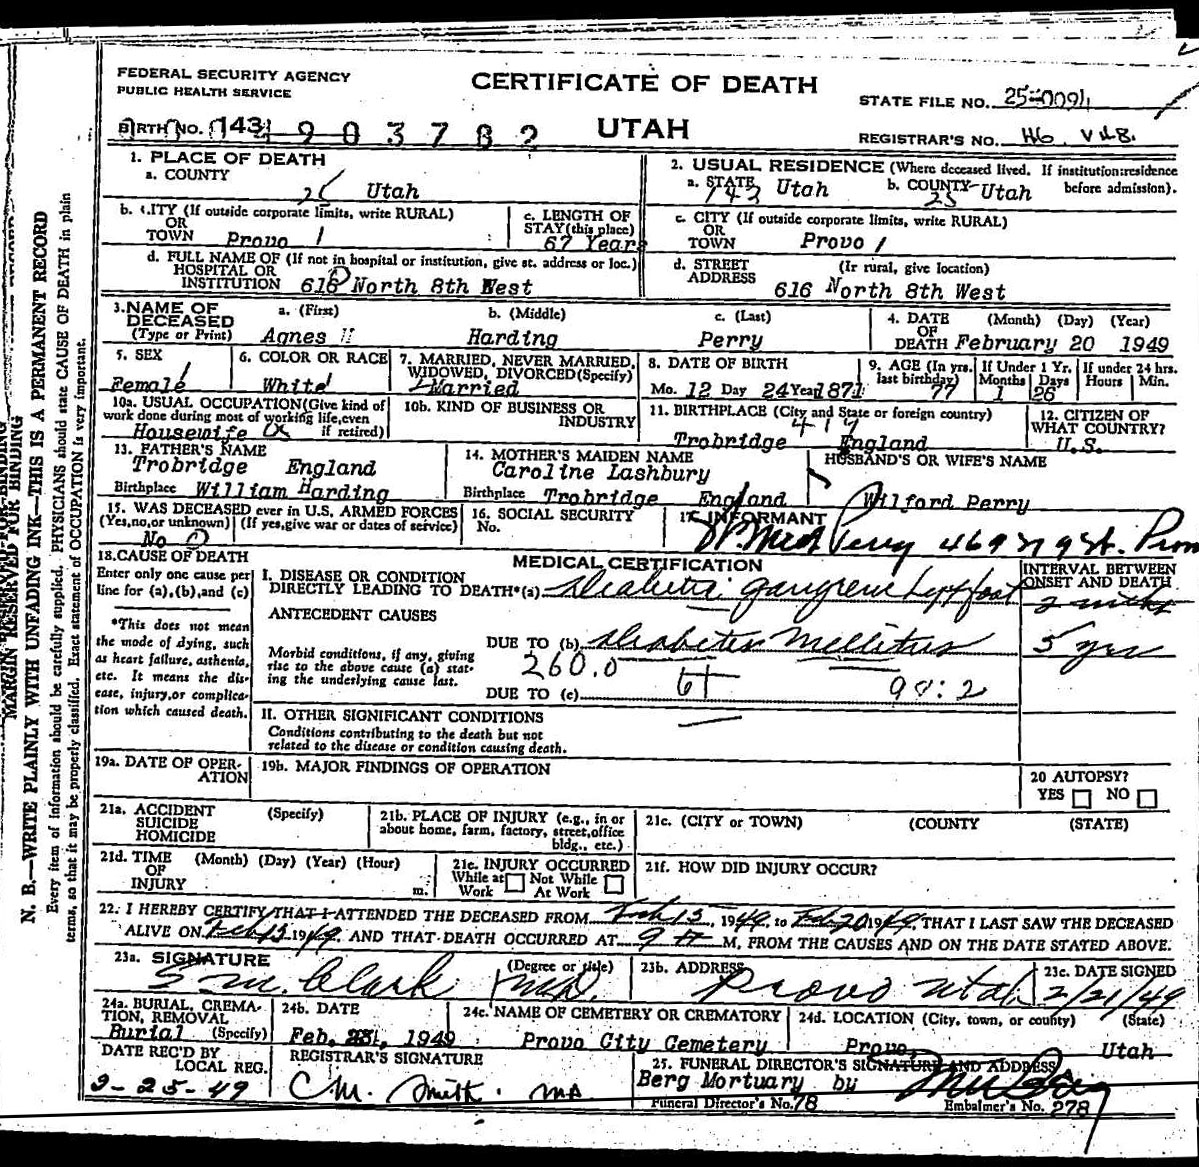 FEDERAL SECURITY AGENCY
PUBLIC HEALTH SERVICE
CERTIFICATE OF DEATH
STATE FILE NO.
BIRTH NO. 143
UTAH
REGISTRAR'S NO. 46
1. PLACE OF DEATH
a. COUNTY
25 Utah
2. USUAL RESIDENCE (Where deceased lived. If institution:residence before admission).
a. STATE 143 Utah b. COUNTY 25 Utah
b. CITY (If outside corporate limits, write RURAL)
OR
TOWN Provo 1
c. LENGTH OF
STAY (this place)
67 Years
c. CITY (If outside corporate limits, write RURAL)
OR
TOWN Provo 1
d. FULL NAME OF (If not in hospital or institution, give st. address or loc.)
HOSPITAL OR
INSTITUTION 616 North 8th West
d. STREET (If rural, give location)
ADDRESS
616 North 8th West
3. NAME OF a. (First) b. (Middle) c. (Last)
DECEASED
(Type or Print) Agnes Harding Perry
4. DATE (Month) (Day) (Year)
OF
DEATH February 20 1949
5. SEX
Female
6. COLOR OR RACE
White
7. MARRIED, NEVER MARRIED,
WIDOWED, DIVORCED (Specify)
Married
8. DATE OF BIRTH
Mo. 12 Day 24 Year 1871
9. AGE (In yrs.
last birthday)
77
If Under 1 Yr.
Months Days
1 26
If under 24 hrs.
Hours Min.
10a. USUAL OCCUPATION (Give kind of
work done during most of working life, even
if retired)
Housewife
10b. KIND OF BUSINESS OR
INDUSTRY
11. BIRTHPLACE (City and State or foreign country)
417
Trobridge England
12. CITIZEN OF
WHAT COUNTRY?
U.S.
13. FATHER'S NAME
Trobridge England
Birthplace William Harding
14. MOTHER'S MAIDEN NAME
Caroline Lashbury
Birthplace Trobridge England
HUSBAND'S OR WIFE'S NAME
Wilford Perry
15. WAS DECEASED ever in U.S. ARMED FORCES
(Yes, no, or unknown) (If yes, give war or dates of service)
No 0
16. SOCIAL SECURITY
No.
17. INFORMANT
Perry 469
18. CAUSE OF DEATH
Enter only one cause per
line for (a), (b), and (c)
*This does not mean
the mode of dying, such
as heart failure, asthenia,
etc. It means the dis-
ease, injury, or complica-
tion which caused death.
MEDICAL CERTIFICATION
INTERVAL BETWEEN
ONSET AND DEATH
I. DISEASE OR CONDITION
DIRECTLY LEADING TO DEATH*(a) Diabetic gangrene Left foot
ANTECEDENT CAUSES
DUE TO (b) Diabetes Mellitus 5 yrs
Morbid conditions, if any, giving
rise to the above cause (a) stat-
ing the underlying cause last.
260.0
61
DUE TO (c)
II. OTHER SIGNIFICANT CONDITIONS
Conditions contributing to the death but not
related to the disease or condition causing death.
19a. DATE OF OPER-
ATION
19b. MAJOR FINDINGS OF OPERATION
20 AUTOPSY?
YES NO
21a. ACCIDENT (Specify)
SUICIDE
HOMICIDE
21b. PLACE OF INJURY (e.g., in or
about home, farm, factory, street, office
bldg., etc.)
21c. (CITY or TOWN) (COUNTY) (STATE)
21d. TIME (Month) (Day) (Year) (Hour)
OF
INJURY m.
21e. INJURY OCCURRED
While at Not While
Work At Work
21f. HOW DID INJURY OCCUR?
22. I HEREBY CERTIFY THAT I ATTENDED THE DECEASED FROM Feb 15, 1949, to Feb 20 1949, THAT I LAST SAW THE DECEASED
ALIVE ON Feb 15 1949, AND THAT DEATH OCCURRED AT 9 A M, FROM THE CAUSES AND ON THE DATE STATED ABOVE.
23a. SIGNATURE (Degree or title)
S M. Clark MD.
23b. ADDRESS
Provo Utah
23c. DATE SIGNED
2/21/49
24a. BURIAL, CREMA-
TION, REMOVAL
Burial (Specify)
24b. DATE
Feb. 1949
24c. NAME OF CEMETERY OR CREMATORY
Provo City Cemetery
24d. LOCATION (City, town, or county) (State)
Provo, Utah
DATE REC'D BY
LOCAL REG.
2-25-49
REGISTRAR'S SIGNATURE
C.M. Smith. MD
25. FUNERAL DIRECTOR'S SIGNATURE AND ADDRESS
Berg Mortuary by
Funeral Director's No. 78 Embalmer's No. 278
MARGIN RESERVED FOR BINDING
N. B.—WRITE PLAINLY WITH UNFADING INK—THIS IS A PERMANENT RECORD
Every item of information should be carefully supplied. PHYSICIANS should state CAUSE OF DEATH in plain
terms, so that it may be properly classified. Exact statement of OCCUPATION is very important.